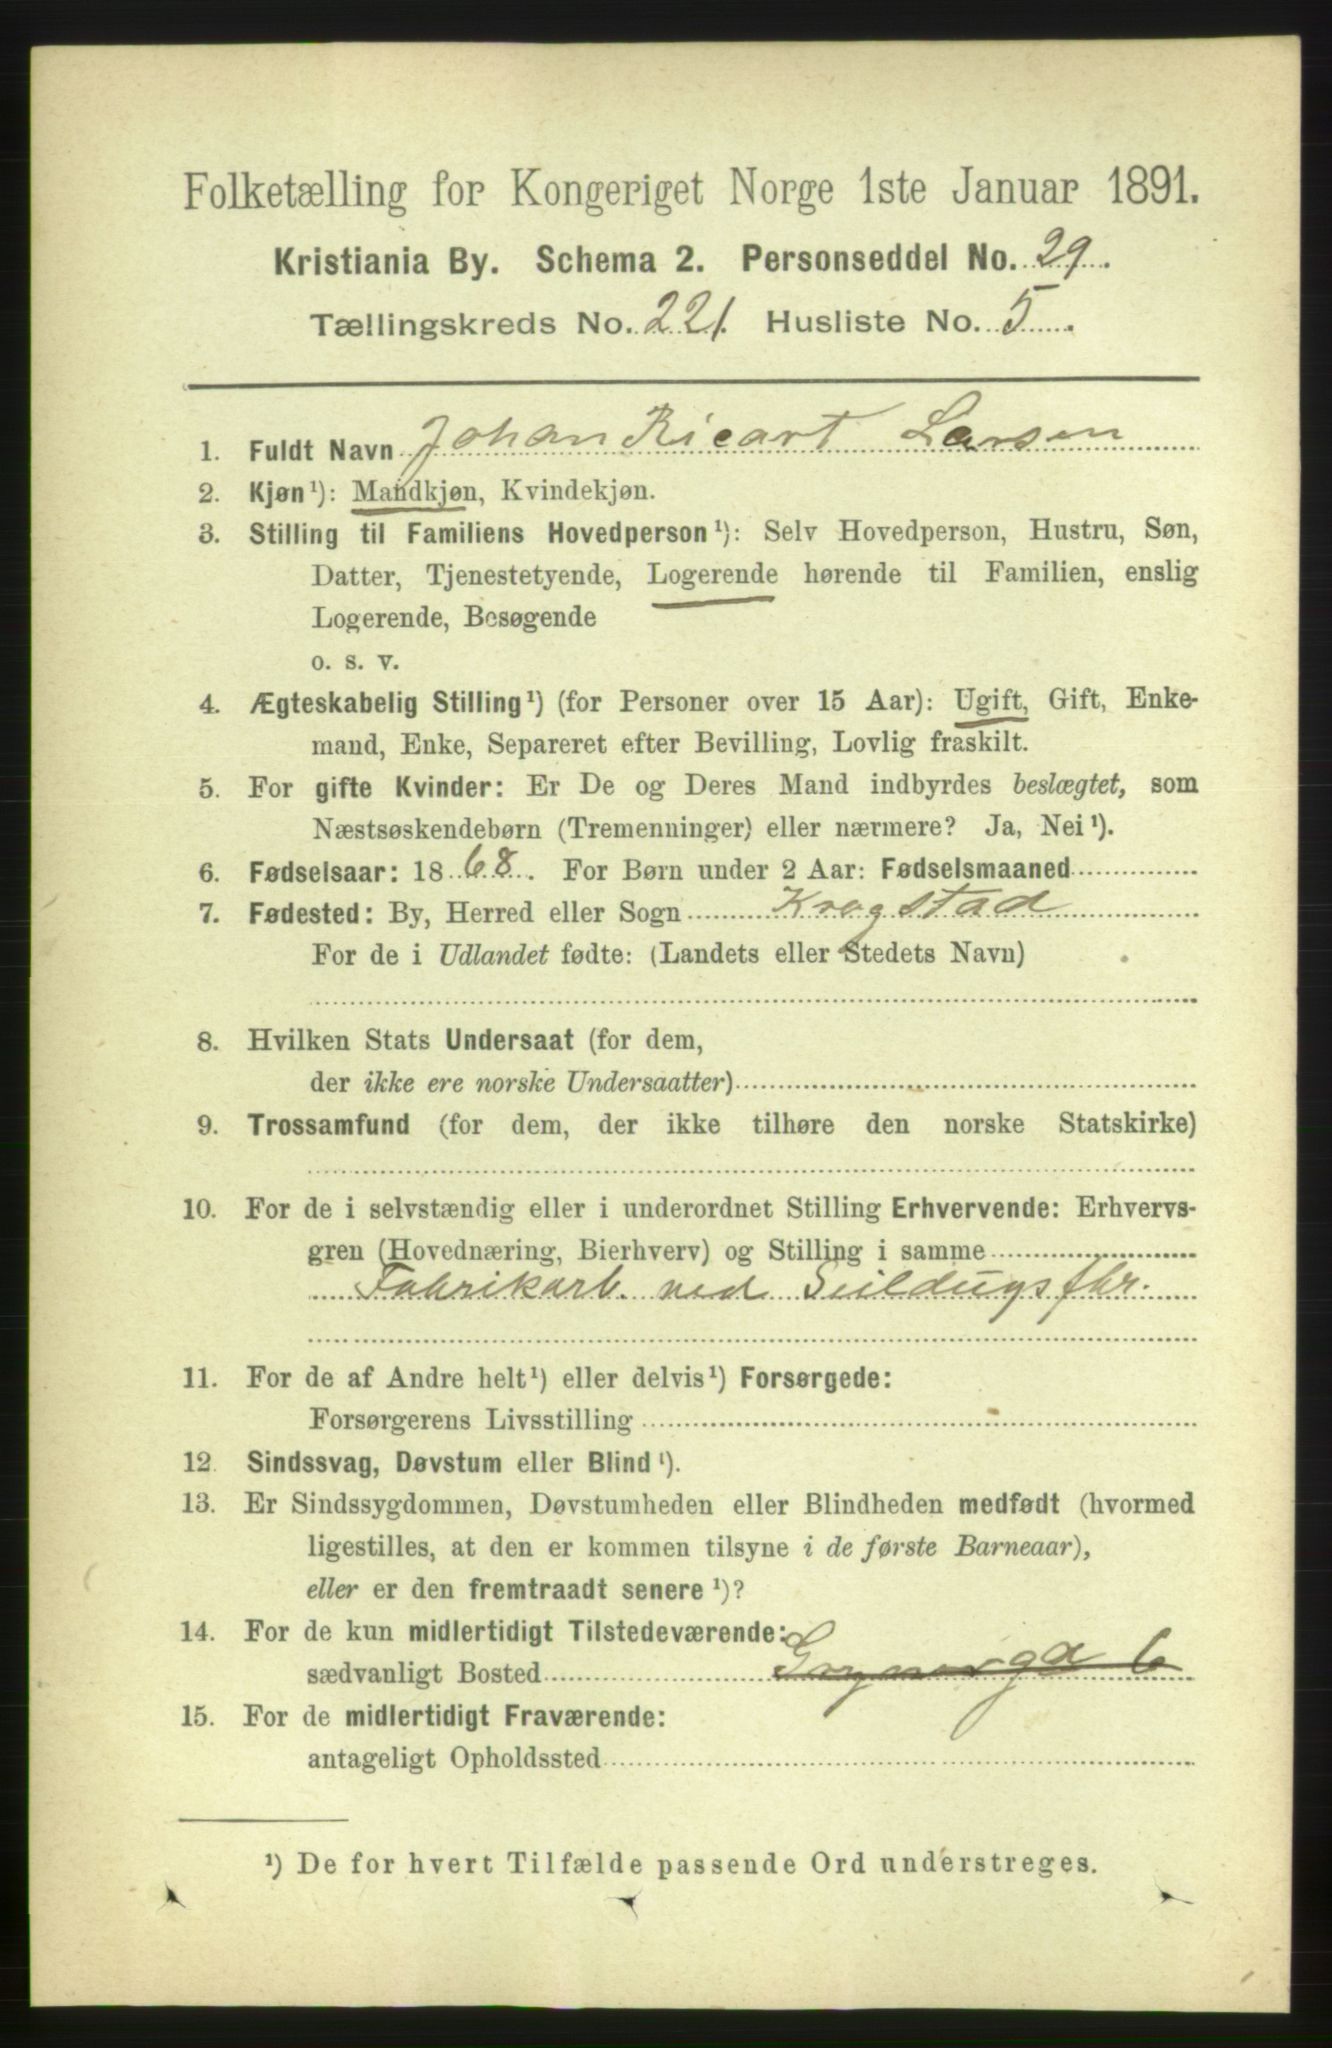 Folketælling for Kongeriget Norge 1ste Januar 1891.
Kristiania By. Schema 2. Personseddel No. 29.
Tællingskreds No. 221. Husliste No. 5.
1. Fuldt Navn Johan Ricart Larsen
2. Kjøn¹): Mandkjøn, Kvindekjøn.
3. Stilling til Familiens Hovedperson¹): Selv Hovedperson, Hustru, Søn,
Datter, Tjenestetyende, Logerende hørende til Familien, enslig
Logerende, Besøgende
o. s. v.
4. Ægteskabelig Stilling¹) (for Personer over 15 Aar): Ugift, Gift, Enke-
mand, Enke, Separeret efter Bevilling, Lovlig fraskilt.
5. For gifte Kvinder: Er De og Deres Mand indbyrdes beslægtet, som
Næstsøskendebørn (Tremenninger) eller nærmere? Ja, Nei¹).
6. Fødselsaar: 1868. For Børn under 2 Aar: Fødselsmaaned
7. Fødested: By, Herred eller Sogn Krogstad
For de i Udlandet fødte: (Landets eller Stedets Navn)
8. Hvilken Stats Undersaat (for dem,
der ikke ere norske Undersaatter)
9. Trossamfund (for dem, der ikke tilhøre den norske Statskirke)
10. For de i selvstændig eller i underordnet Stilling Erhvervende: Erhvervs-
gren (Hovednæring, Bierhverv) og Stilling i samme
Fabrikarb. ved Seildugsfbr.
11. For de af Andre helt¹) eller delvis¹) Forsørgede:
Forsørgerens Livsstilling
12 Sindssvag, Døvstum eller Blind¹).
13. Er Sindssygdommen, Døvstumheden eller Blindheden medfødt (hvormed
ligestilles, at den er kommen tilsyne i de første Barneaar),
eller er den fremtraadt senere¹)?
14. For de kun midlertidigt Tilstedeværende:
sædvanligt Bosted 6
15. For de midlertidigt Fraværende:
antageligt Opholdssted
¹) De for hvert Tilfælde passende Ord understreges.